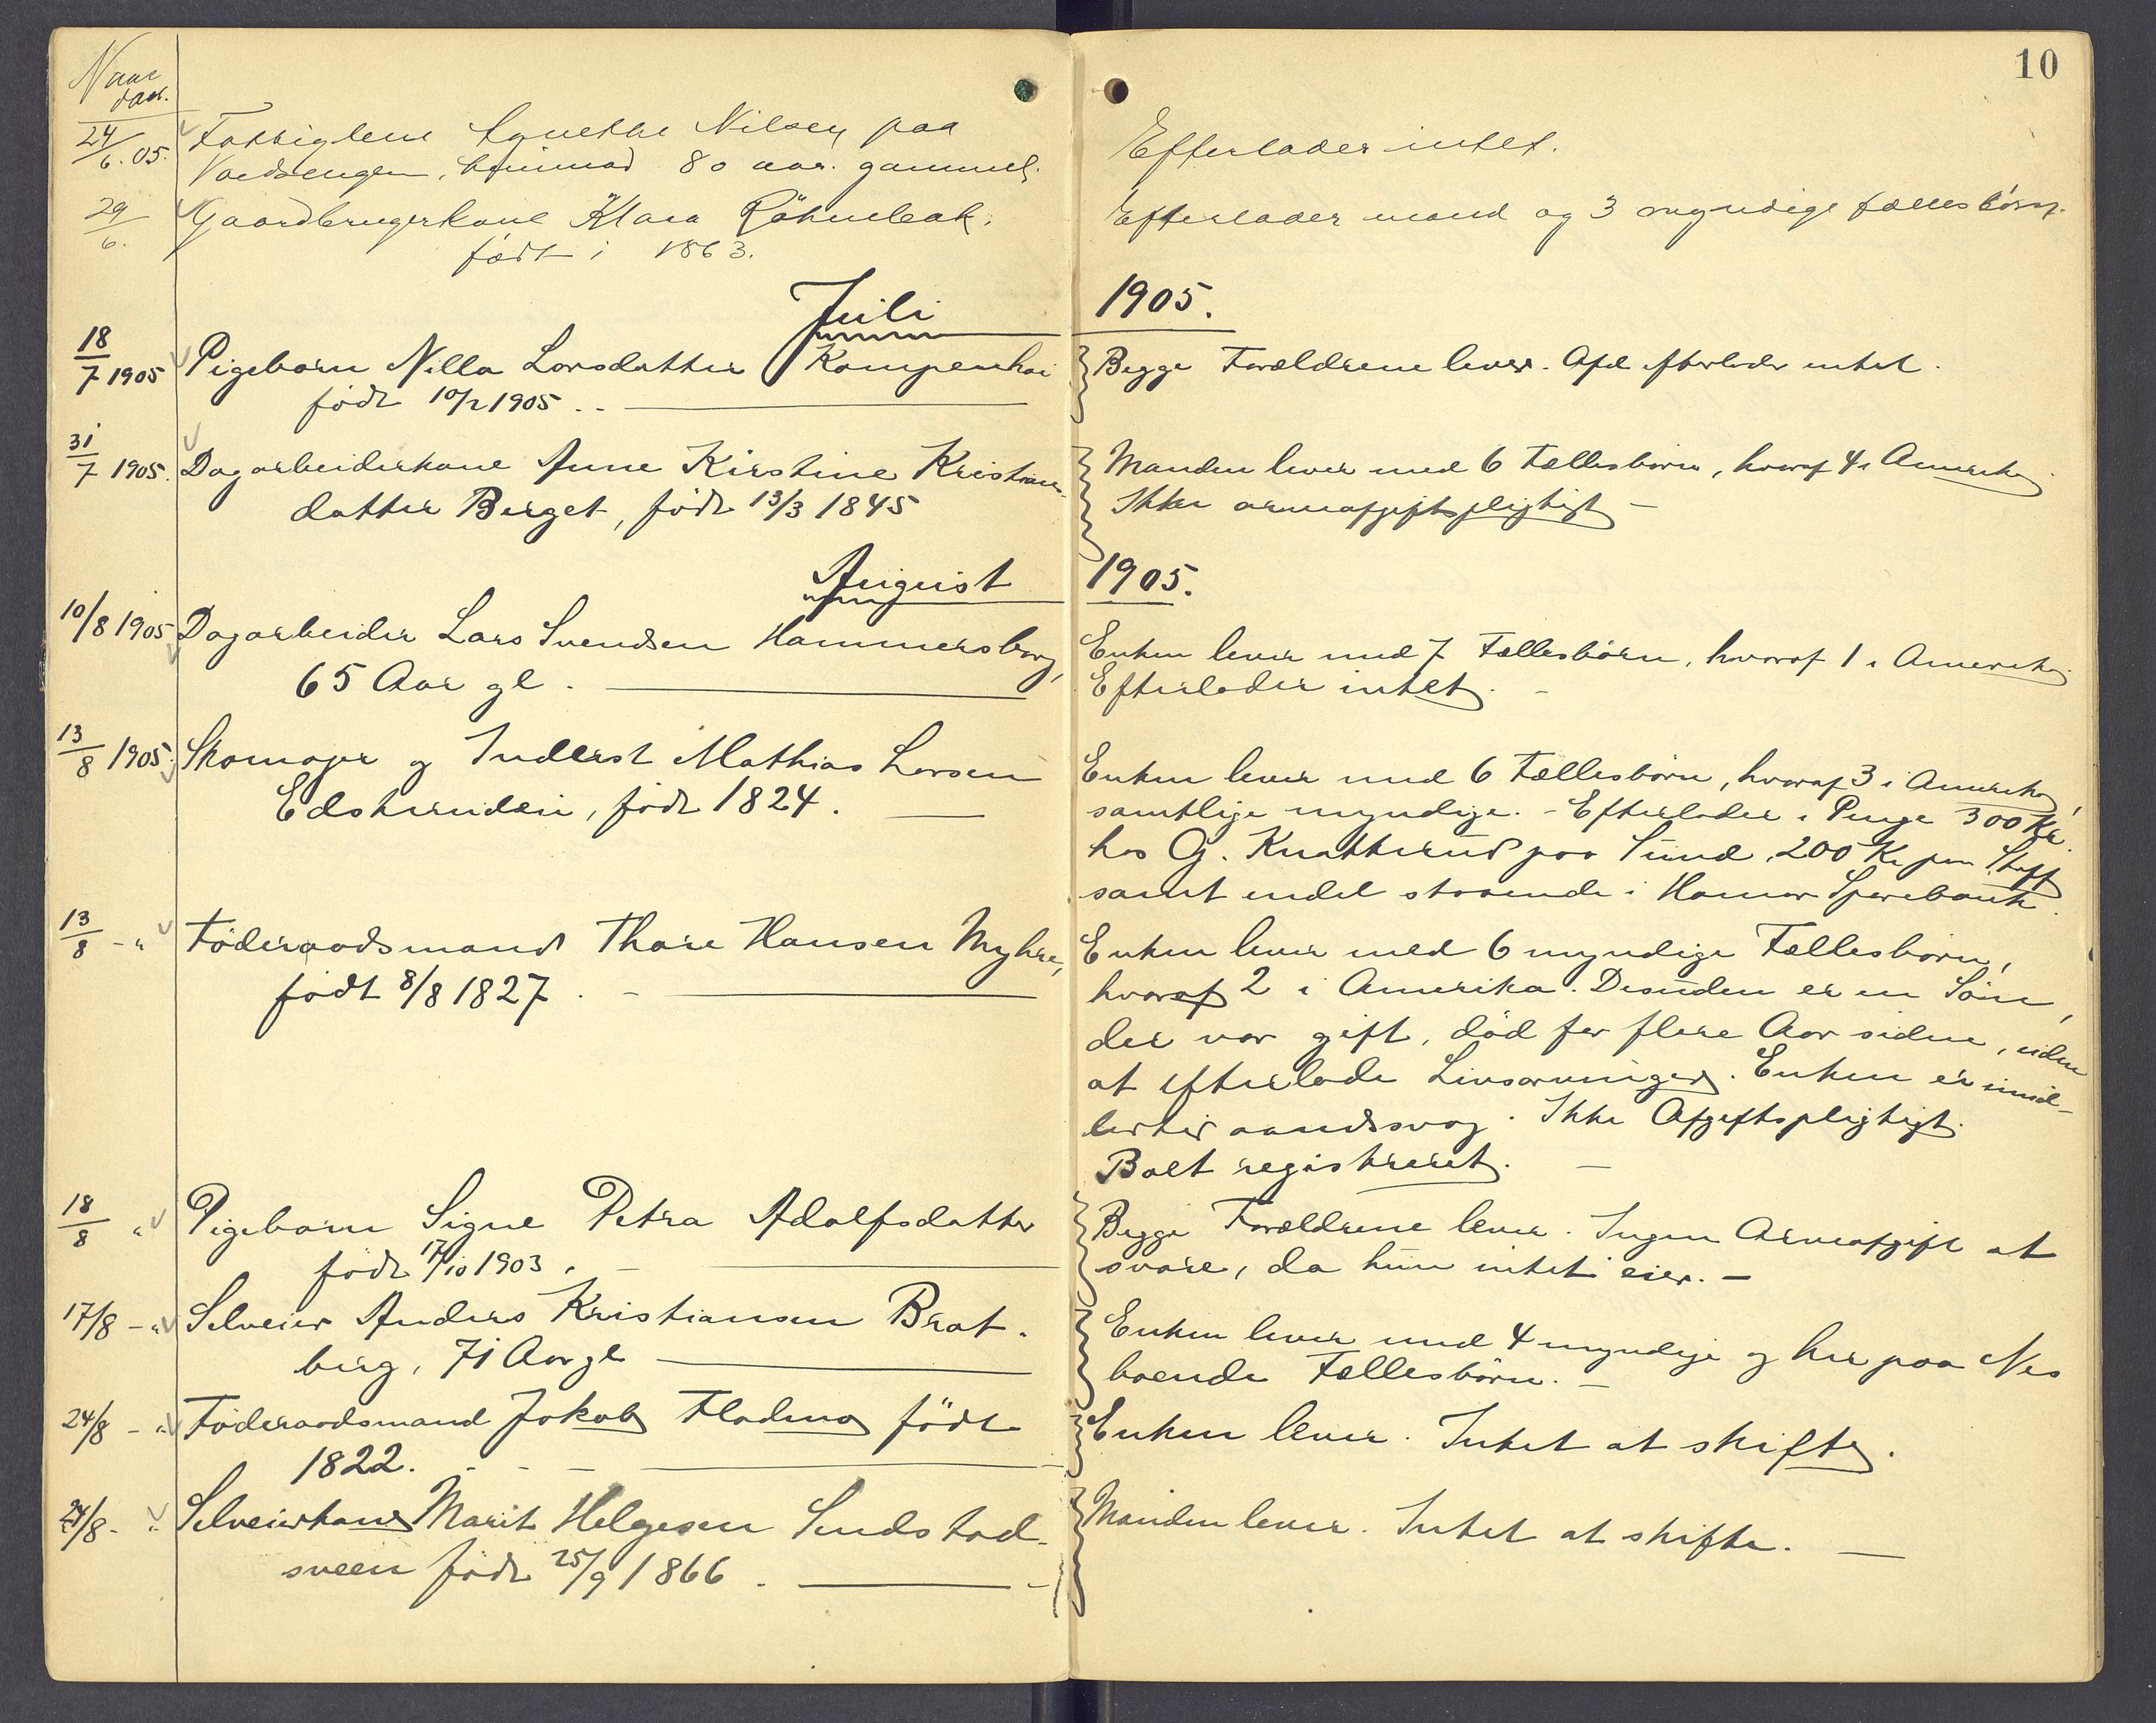 10
Naar
død.
24/6. 05. Fattiglem Agnethe Nilsen paa
Voldsengen, 80 aar. gammel.
Efterlader intet.
29/6. Gaardbrugerkone Klara
født i 1863.
Efterlader mand og 3 myndige fællesbørn.
Juli 1905.
18/7 1905 Pigebarn Nilla Larsdatter Kampenhai
født 10/2 1905 . .
Begge Forældrene lever. Afd. efterlader intet.
31/7 1905. Dagarbeiderkone Anne Kirstine Kristians-
datter Berget, født 13/3 1845
Manden lever med 6 Fællesbørn, hvoraf 4 i Amerika.
Ikke arveafgiftspligtigt –
August 1905.
10/8 1905 Dagarbeider Lars Svendsen Hammersborg,
65 Aar gl.
Enken lever med 7 Fællesbørn, hvoraf 1 i Amerika.
Efterlader intet. –
13/8 1905. Skomager og Inderst Mathias Larsen
født 1824.
Enken lever med 6 Fællesbørn, hvoraf 3 i Amerika,
samtlige myndige. – Efterlader i Penge 300 Kr.
hos G. Knatterud paa Sund, 200 Kr paa
samt endel staaende i Hamar Sparebank.
13/8 – " Føderaadsmand Thore Hansen Myhre,
født 8/8 1827. –
Enken lever med 6 myndige Fællesbørn,
hvoraf 2 i Amerika. Desuden er en Søn,
der var gift, død for flere Aar siden, uden
at efterlade Livsarvinger. Enken er imid-
lertid aandssvag. Ikke Afgiftspligtigt.
Boet registreret. –
18/8 " Pigebarn Signe Petra Adolfsdatter
født 17/10 1903. –
Begge Forældrene lever. Ingen Arveafgift at
svare, da hun intet eier. –
17/8 – " Selveier Anders Kristiansen Brat-
berg, 71 Aar gl
Enken lever med 4 myndige og her paa Nes
boende Fællesbørn. –
24/8 – " Føderaadsmand Jakob født
1822. – – –
Enken lever. Intet at skifte.
24/8 – " Selveierkone Marit Helgesen Sendstad-
sveen født 25/9 1866.
Manden lever. Intet at skifte. –